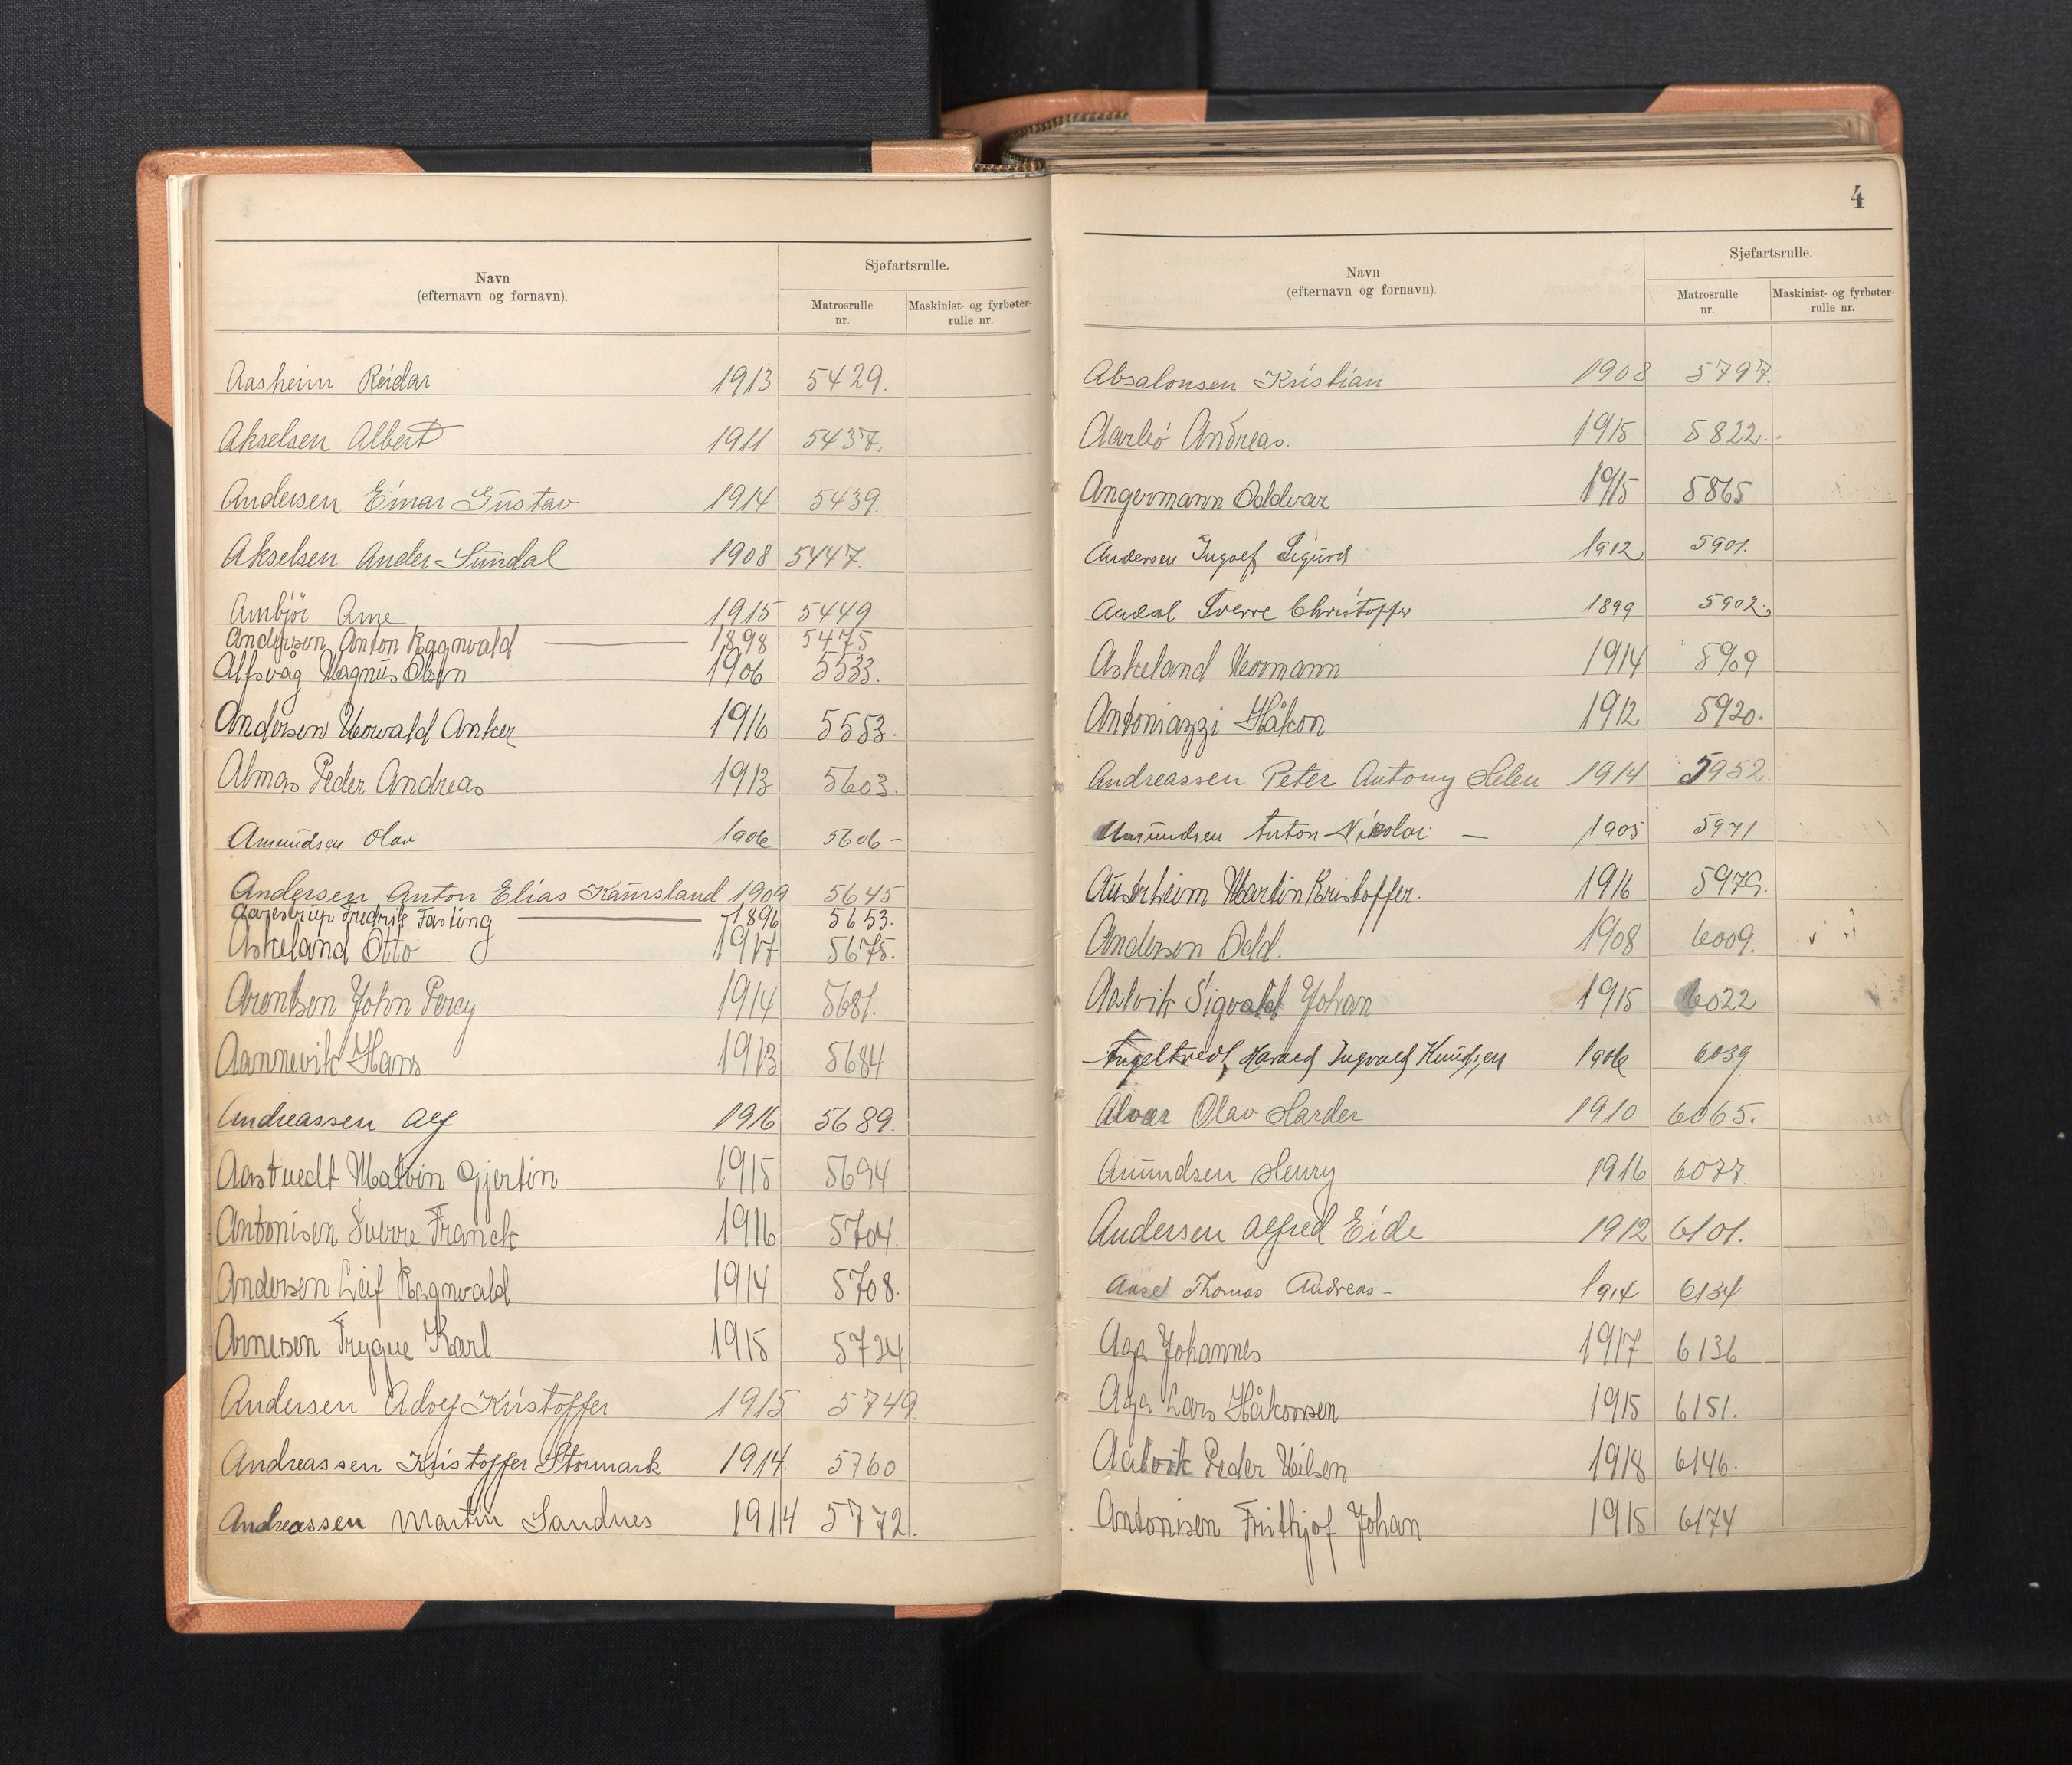 Navn
(efternavn og fornavn).
Sjøfartsrulle.
Matrosrulle
nr.
Maskinist- og fyrbøter-
rulle nr.
Aasheim Reidar 1913 5429.
Akselsen Albert 1911 5437.
Andersen Einar Gustav 1914 5439.
Akselsen Ander Sundal 1908 5447.
Arnbjör Arne 1915 5449
Andersen Anton Ragnvald — 1898 5475
Alfsvåg Magnus Olsen 1906 5533.
Andersen Norvald Anker 1916 5553.
Almås Peder Andreas 1913 5603.
Amundsen Olav 1906 5606 –
Andersen Anton Elias Kaursland 1909 5645
Aarestrup Fredrik Fasting — 1896 5653.
Askeland Otto 1917 5675.
Arentsen John Percy 1914 5681.
Aannevik Hans 1913 5684
Andreassen Alf 1916 5689.
Aastvedt Malvin Gjertin 1915 5694
Antonisen Sverre Franck 1916 5704.
Andersen Leif Ragnvald 1914 5708.
Arnesen Trygve Karl 1915 5724
Andersen Adolf Kristoffer 1915 5749.
Andreassen Kristoffer Stormark 1914. 5760
Andreassen Martin Sandnes 1914 5772.
4
Navn
(efternavn og fornavn).
Sjøfartsrulle.
Matrosrulle
nr.
Maskinist- og fyrbøter-
rulle nr.
Absalonsen Kristian 1908 5797.
Aarbö Andreas. 1915 5822.
Angermann Oddvar 1915 5865
Andersen Ingolf Sigurd 1912 5901.
Andal Sverre Christoffer 1899 5902.
Askeland Normann 1914 5909
Antoniazzi Håkon 1912 5920.
Andreassen Peter Antony Helen 1914 5952.
Amundsen Anton Nicolai — 1905 5971
Austrheim Martin Kristoffer. 1916 5979.
Andersen Odd. 1908 6009.
Aalvik Sigvald Johan 1915 6022
Angeltvedt, Harald Ingvald Knudsen 1906 6039
Alvær Olav Harder 1910 6065.
Amundsen Henry 1916 6077.
Andersen Alfred Eide 1912 6101.
Aase Thomas Andreas – 1914 6134
Aga Johannes 1917 6136
Aga Lars Håkonsen 1915 6151.
Aalvik Peder Nilsen 1918 6146.
Antonisen Frithjof Johan 1915 6174